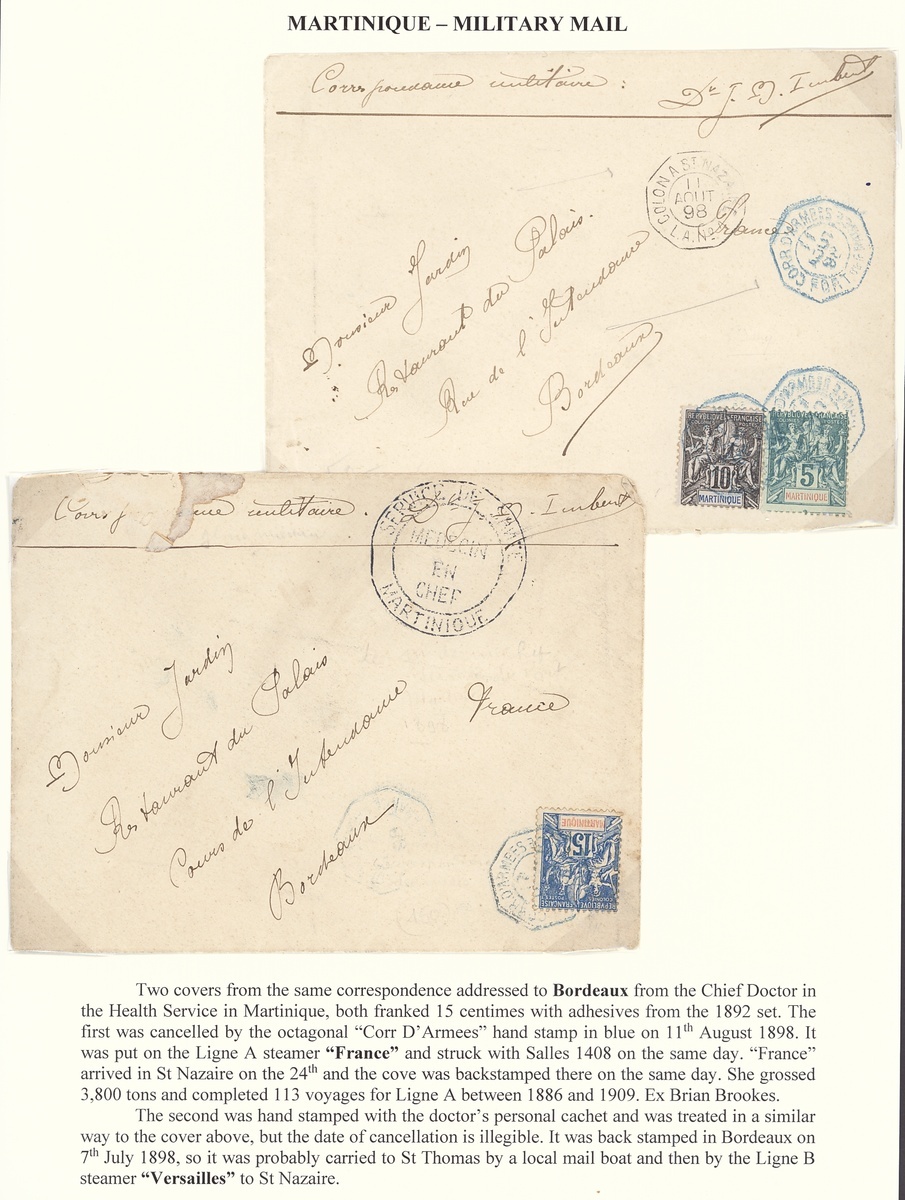 MARTINIQUE – MILITARY MAIL
Correspondance militaire : Dr J. M. Imbert
COLON A ST NAZAIRE
11
AOUT
98
L.A. No
France
CORR D'ARMEES
FORT
Monsieur Jardin
Restaurant du Palais.
Rue de l'Intendance
Bordeaux
REPUBLIQUE FRANÇAISE
COLONIES POSTES
10
MARTINIQUE
REPUBLIQUE FRANÇAISE
COLONIES POSTES
5
MARTINIQUE
militaire. Dr J. M. Imbert
SERVICE DE SANTE
MEDECIN
EN
CHEF
MARTINIQUE
Monsieur Jardin
Restaurant du Palais
Cours de l'Intendance
Bordeaux
France
CORR D'ARMEES
MARTINIQUE
15
REPUBLIQUE FRANÇAISE
COLONIES POSTES
Two covers from the same correspondence addressed to Bordeaux from the Chief Doctor in
the Health Service in Martinique, both franked 15 centimes with adhesives from the 1892 set. The
first was cancelled by the octagonal “Corr D’Armees” hand stamp in blue on 11th August 1898. It
was put on the Ligne A steamer “France” and struck with Salles 1408 on the same day. “France”
arrived in St Nazaire on the 24th and the cove was backstamped there on the same day. She grossed
3,800 tons and completed 113 voyages for Ligne A between 1886 and 1909. Ex Brian Brookes.
The second was hand stamped with the doctor’s personal cachet and was treated in a similar
way to the cover above, but the date of cancellation is illegible. It was back stamped in Bordeaux on
7th July 1898, so it was probably carried to St Thomas by a local mail boat and then by the Ligne B
steamer “Versailles” to St Nazaire.